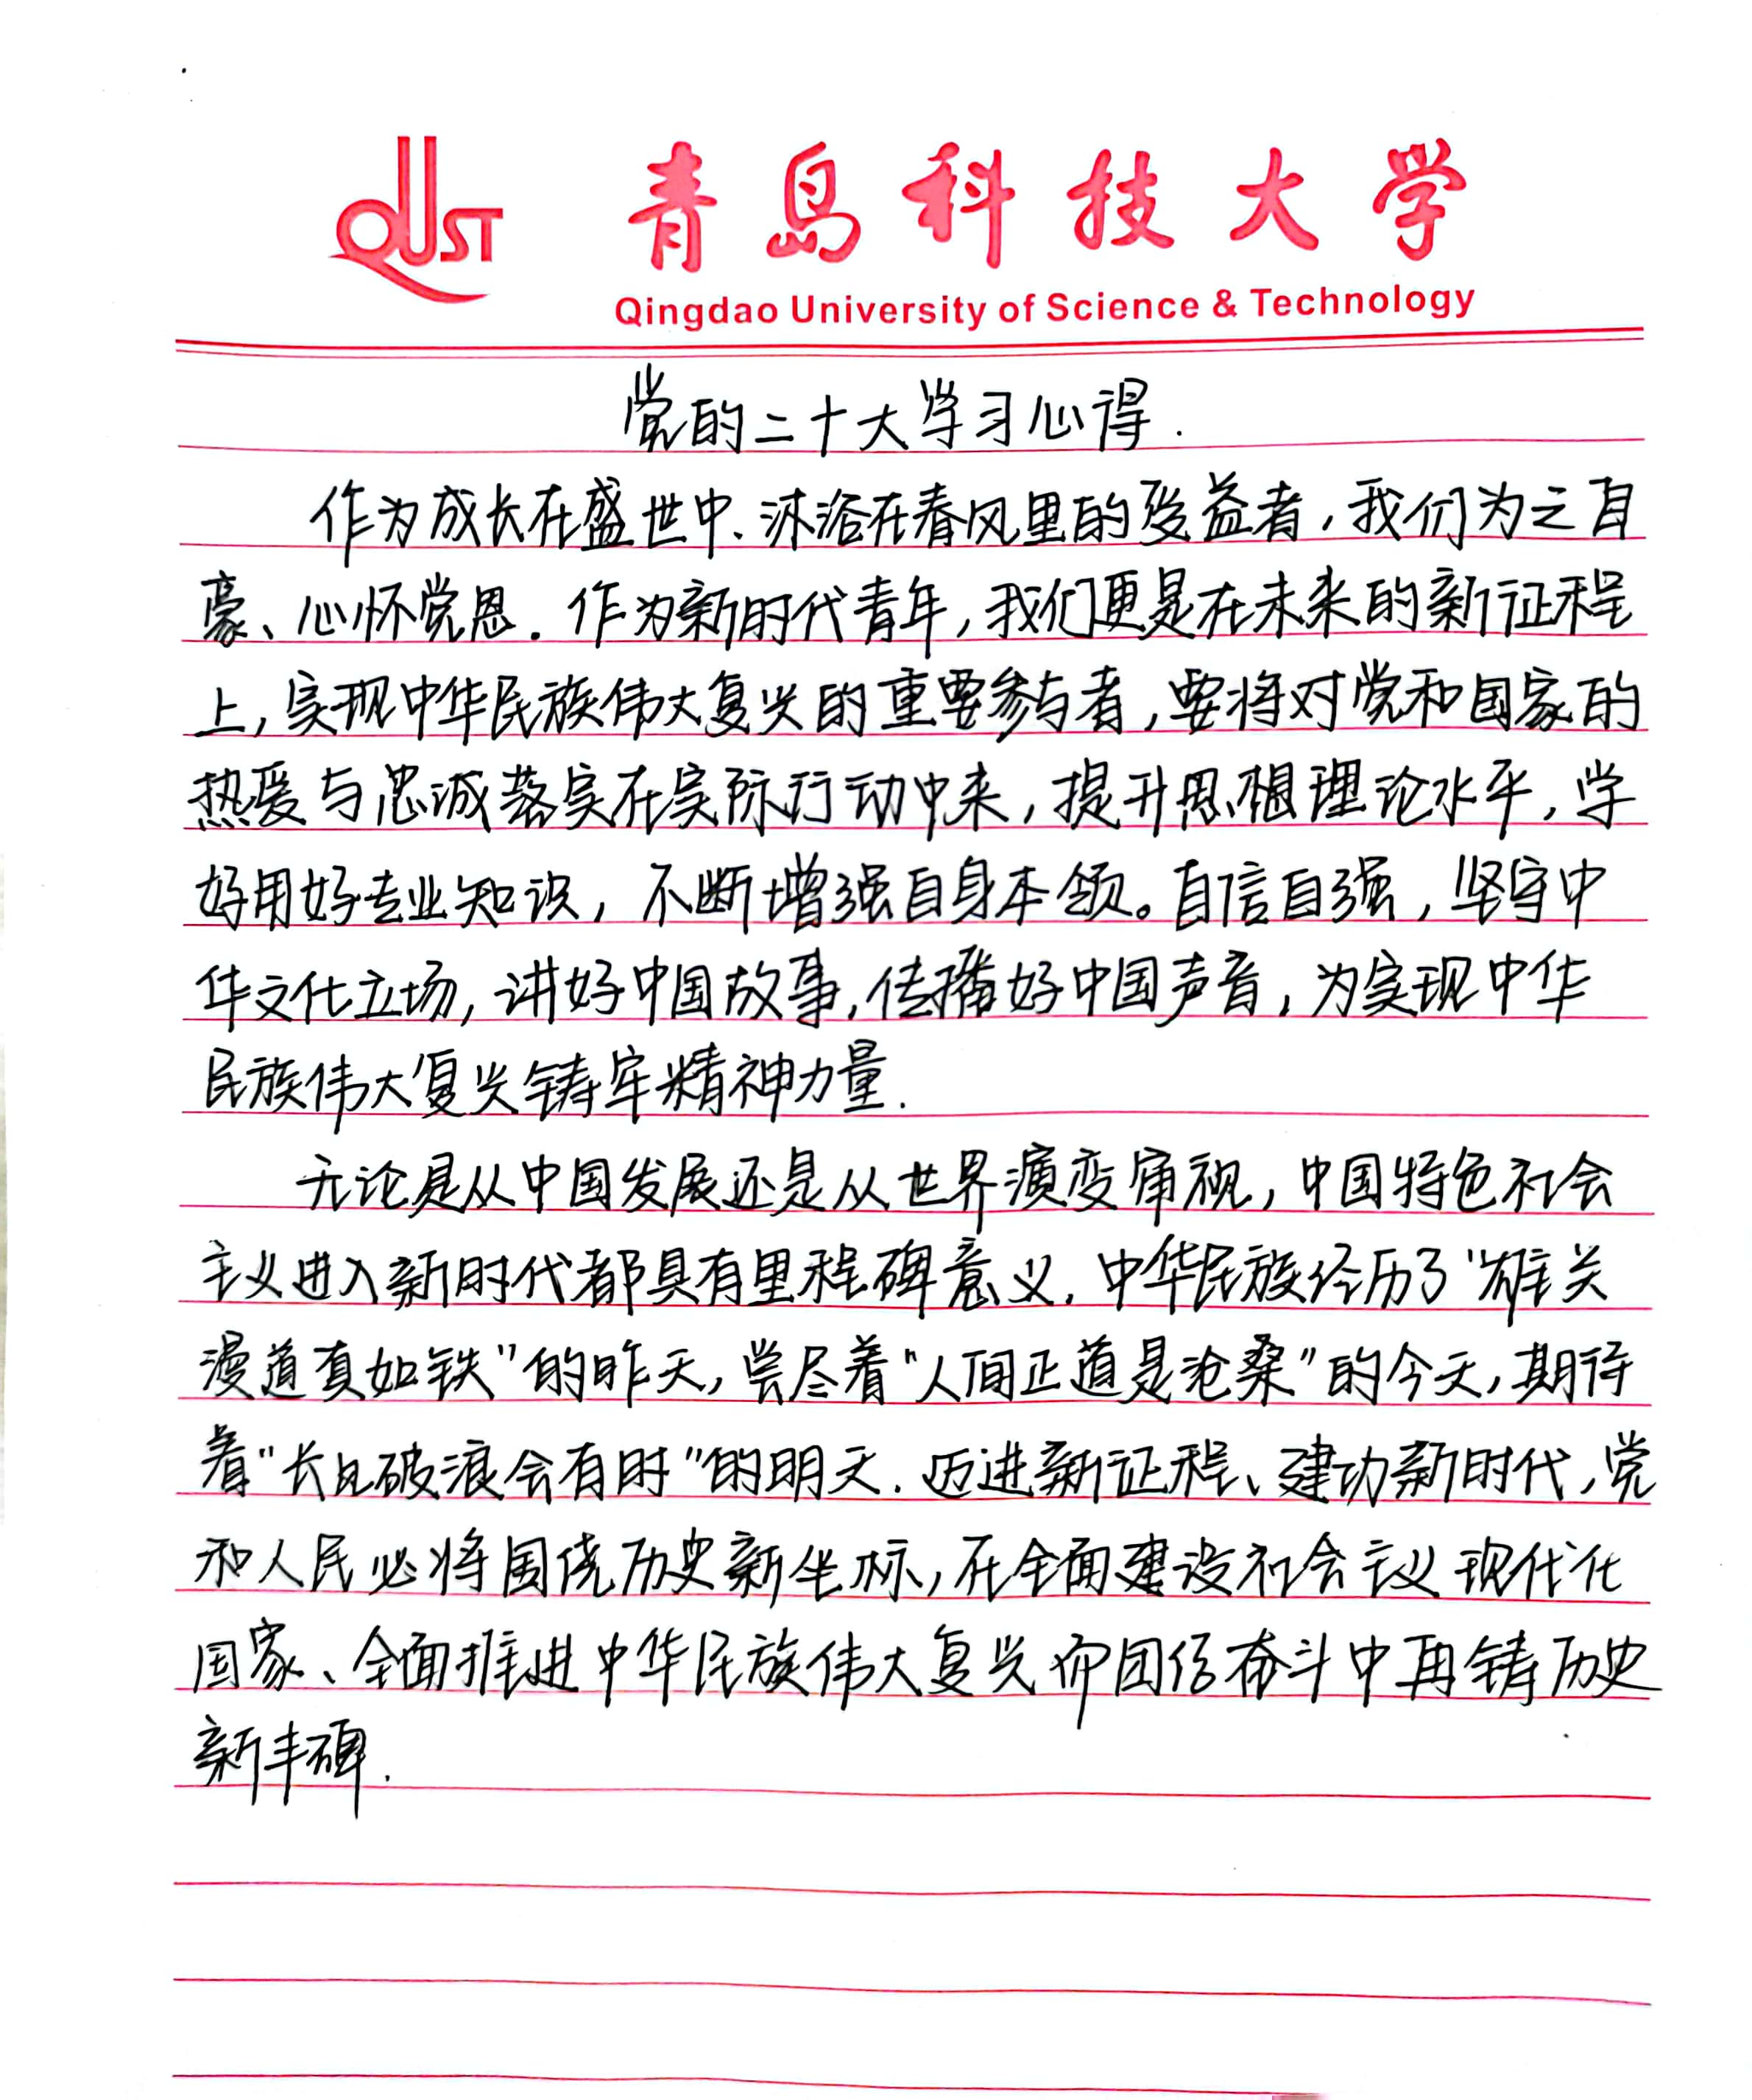 QUST 青岛科技大学
Qingdao University of Science & Technology
党的二十大学习心得.
作为成长在盛世中、沐浴在春风里的受益者,我们为之自
豪、心怀党恩.作为新时代青年,我们更是在未来的新征程
上,实现中华民族伟大复兴的重要参与者,要将对党和国家的
热爱与忠诚落实在实际行动中来,提升思想理论水平,学
好用好专业知识,不断增强自身本领。自信自强,坚守中
华文化立场,讲好中国故事,传播好中国声音,为实现中华
民族伟大复兴铸牢精神力量.
无论是从中国发展还是从世界演变审视,中国特色社会
主义进入新时代都具有里程碑意义.中华民族经历了“雄关
漫道真如铁”的昨天,尝尽着“人间正道是沧桑”的今天,期待
着“长风破浪会有时”的明天.迈进新征程、建功新时代,党
和人民必将围绕历史新坐标,在全面建设社会主义现代化
国家、全面推进中华民族伟大复兴而团结奋斗中再铸历史
新丰碑.